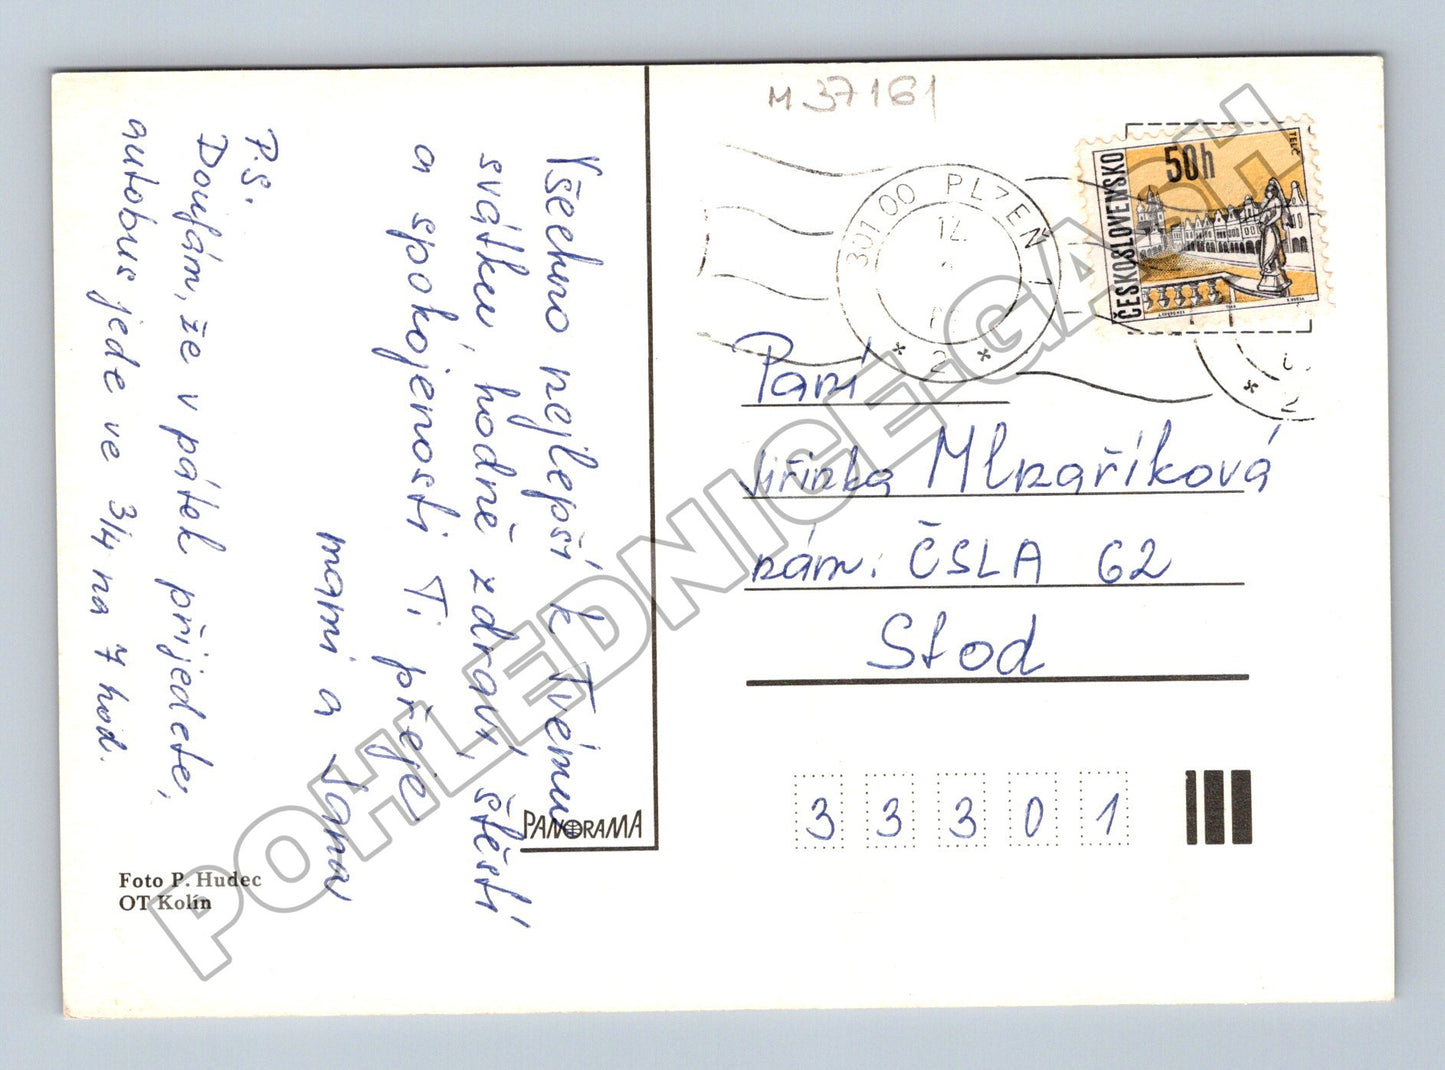 M 37161
Všechno nejlepší k Tvému
svátku, hodně zdraví, štěstí
a spokojenosti Ti přeje
mami a Jana
P.S.
Doufám, že v pátek přijedete,
autobus jede ve 3/4 na 7 hod.
Foto P. Hudec
OT Kolín
PANORAMA
301 00 PLZEŇ 1
12.
* 2 *
ČESKOSLOVENSKO
50h
TELČ
* 2
Paní
Jiřinka Mlnaříková
nám. ČSLA 62
Stod
3 3 3 0 1
POHLEDNICE-GASH